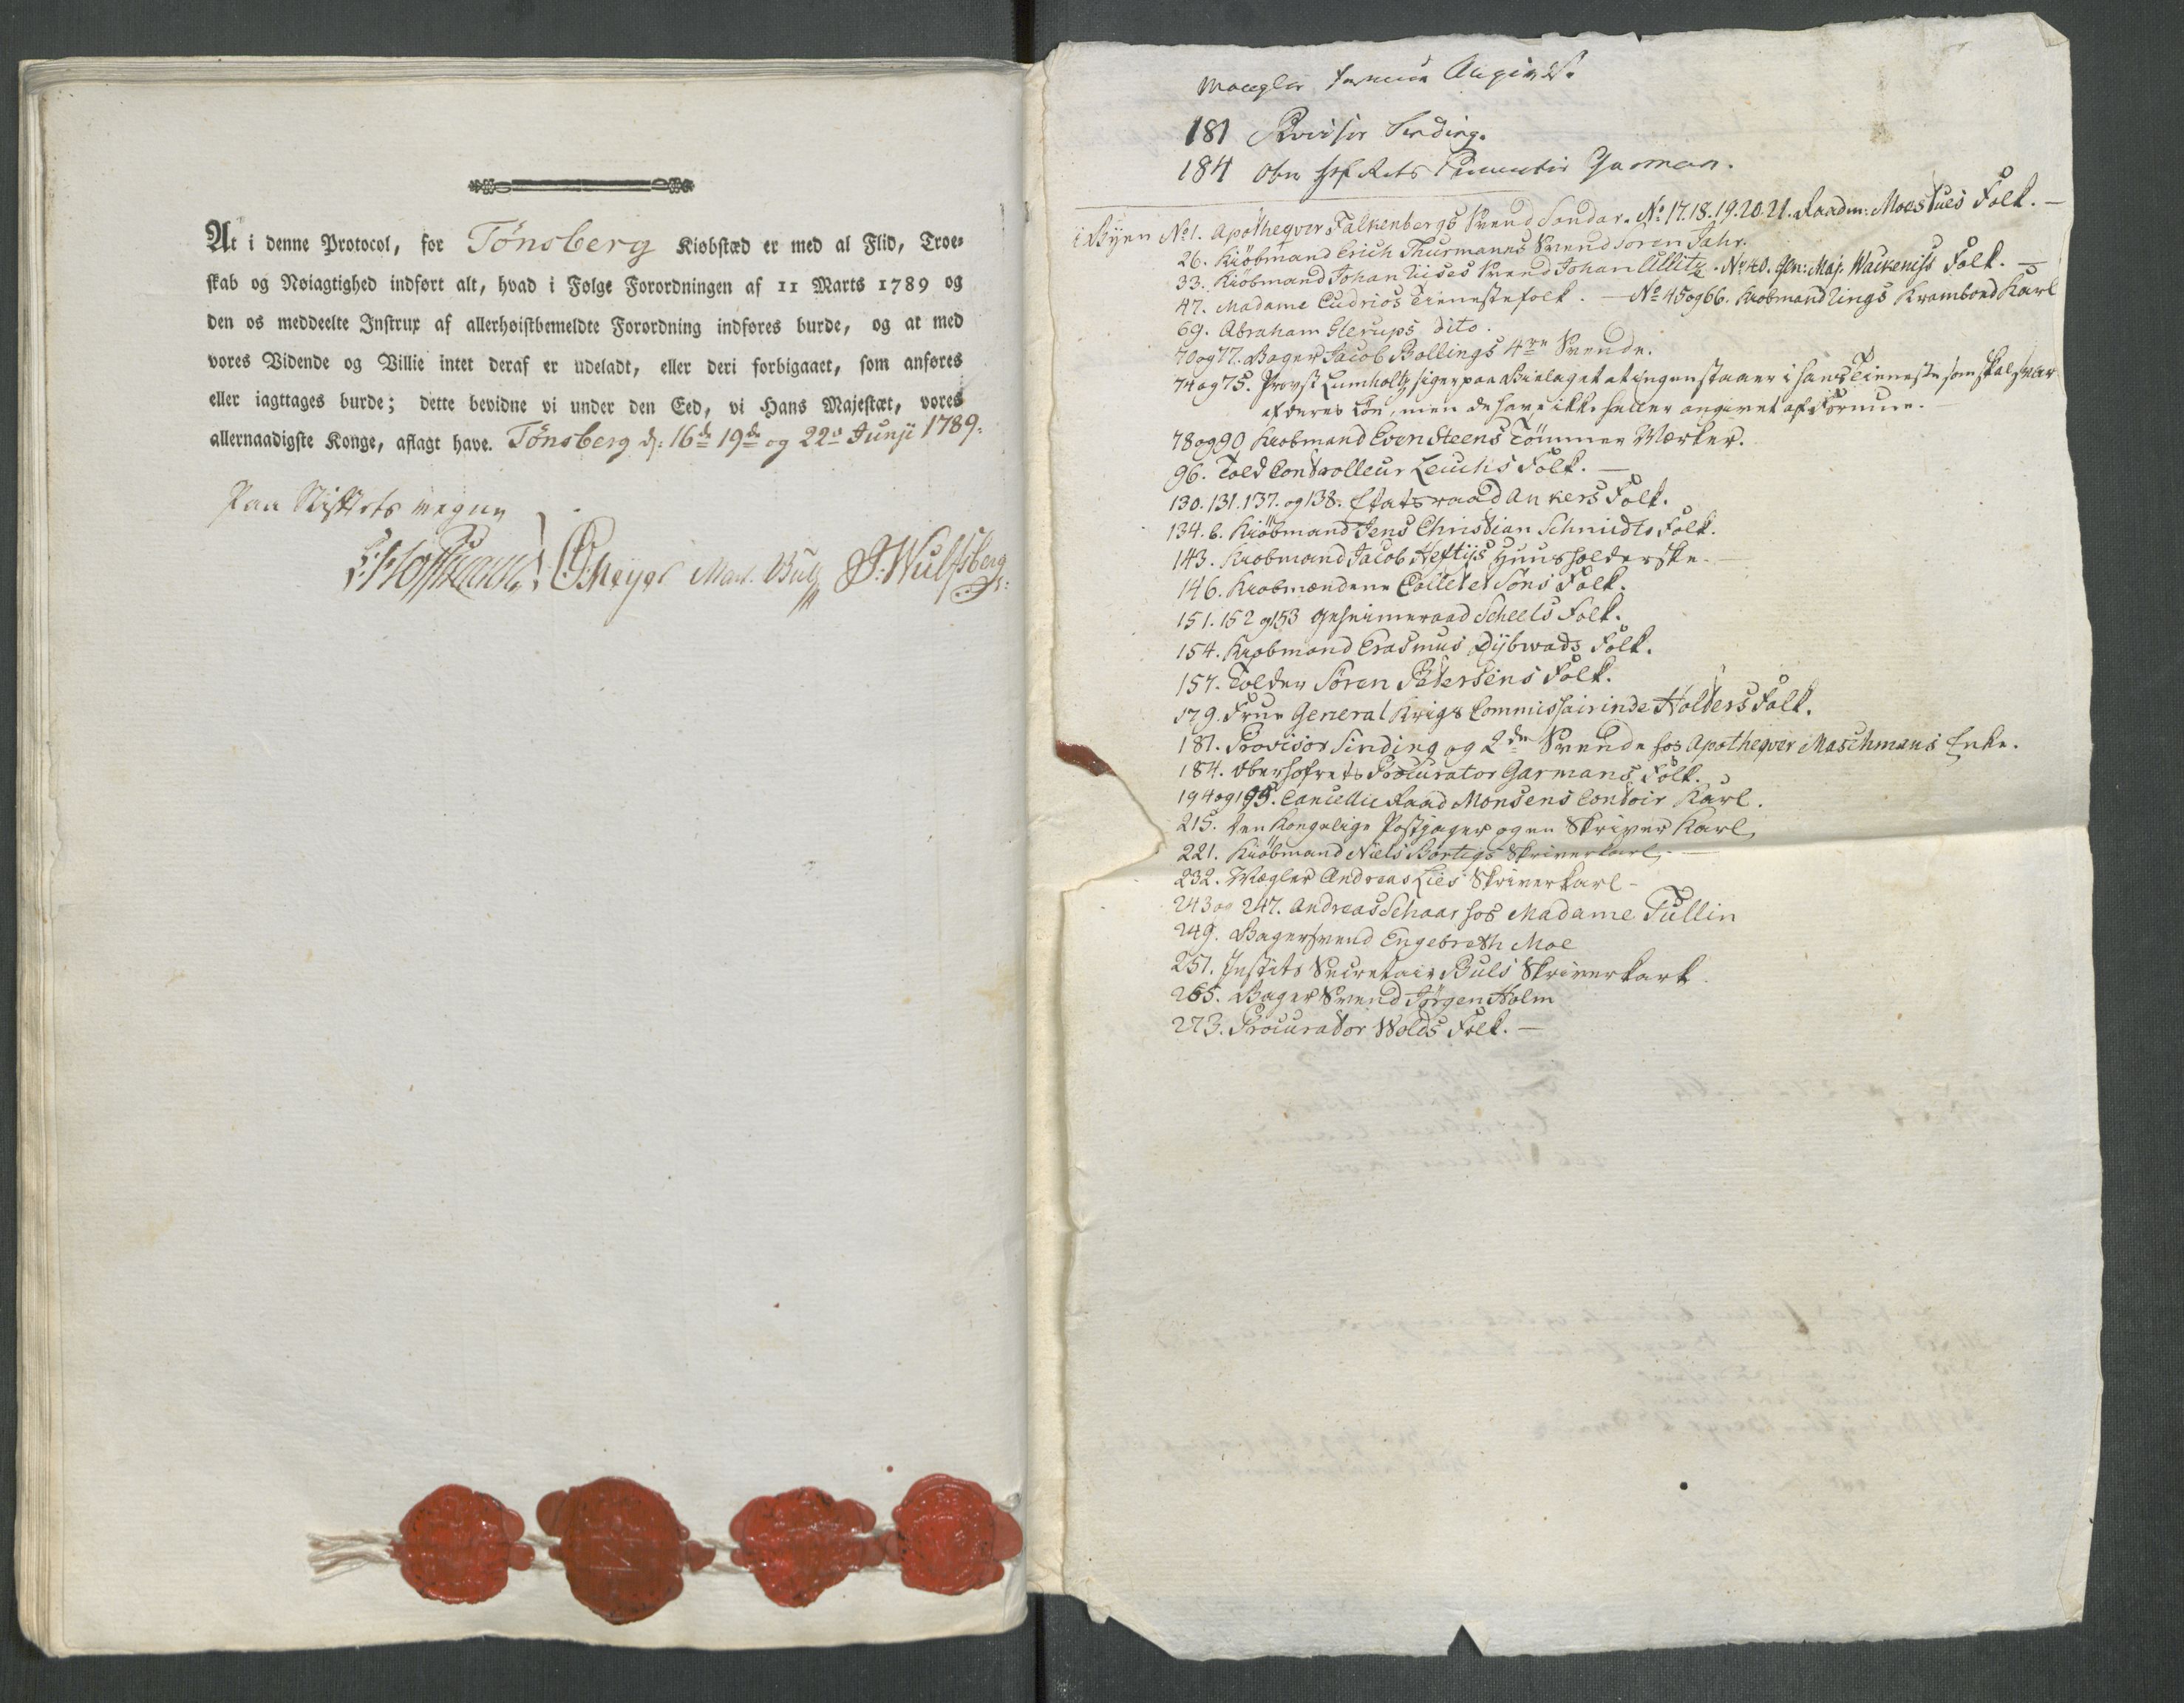 At i denne Protocol, for Tönsberg Kiøbstæd er med al Flid, Troe-
skab og Nøiagtighed indført alt, hvad i Følge Forordningen af 11 Marts 1789 og
den os meddeelte Instrux af allerhøistbemeldte Forordning indføres burde, og at med
vores Vidende og Villie intet deraf er udeladt, eller deri forbigaaet, som anføres
eller iagttages burde; dette bevidne vi under den Eed, vi Hans Majestæt, vores
allernaadigste Konge, aflagt have. Tönsberg d: 16de 19de og 22de Junji 1789.
Paa Stiftets vegne
Hoffmann. Meyer Mart. Bull J. Wulfsberg
Mangler Formue Angivet.
181 Provisor Sinding.
184 Ober Hof Rets Procurator Garman.
i Byen No 1. Apotheqver Falkenbergs Svend Sondar. No 17.18.19.20.21. Raadm: Moestues Folk. —
26. Kiöbmand Erich Thurmanns Svend Soren Jahr.
33. Kiöbmand Johan Svend Johan Ullitz. No 40. Gen: Maj: Wackenitz Folk. —
47. Madame Tienestefolk. — No 45 og 66. Kiobmand Lings Krambod Karl
69. Abraham Glerups dito.
70 og 77. Bager Jacob Bollings 4re Svende.
74 og 75. Provst Lumholtz siger paa Bielaget at ingen staaer i hans Tieneste som skal svar
af deres Lön, men de have ikke heller angivet af Formue. —
78 og 90 Kiobmand Even Steens Tömmer Mærker.
96. Told Controlleur Leuchs Folk. —
130. 131. 137. og 138. Etatsraad Ankers Folk.
134. 6. Kiöbmand Jens Christian Schmidts Folk.
143. Kiobmand Jacob Heftijs Huusholderske. —
146. Kiobmændene Collet et Söns Folk.
151. 152 og 153 Geheimeraad Scheels Folk.
154. Kiobmand Erasmus Dijbwads Folk.
157. Tolder Sören Petersens Folk.
179. Frue General Krigs Commissairinde Holters Folk.
181. Provisor Sinding og 2de Svende hos Apotheqver Maschmans Enke.
184. Oberhofrets Procurator Garmans Folk.
194 og 195. Cancellie Raad Monsens Contoir Karl.
215. den Kongelige Postjager og en Skriver Karl,
221. Kiöbmand Niels Skriverkarl, —
232. Mægler Andreas Lies Skriverkarl —
243 og 247. Andreas Schaar hos Madame Tullin
249. Bagersvend Engebreth Moe
251. Justits Secretair Buls Skriverkarl.
265. Bager Svend Jörgen Holm
273. Procurator Wolds Folk. —